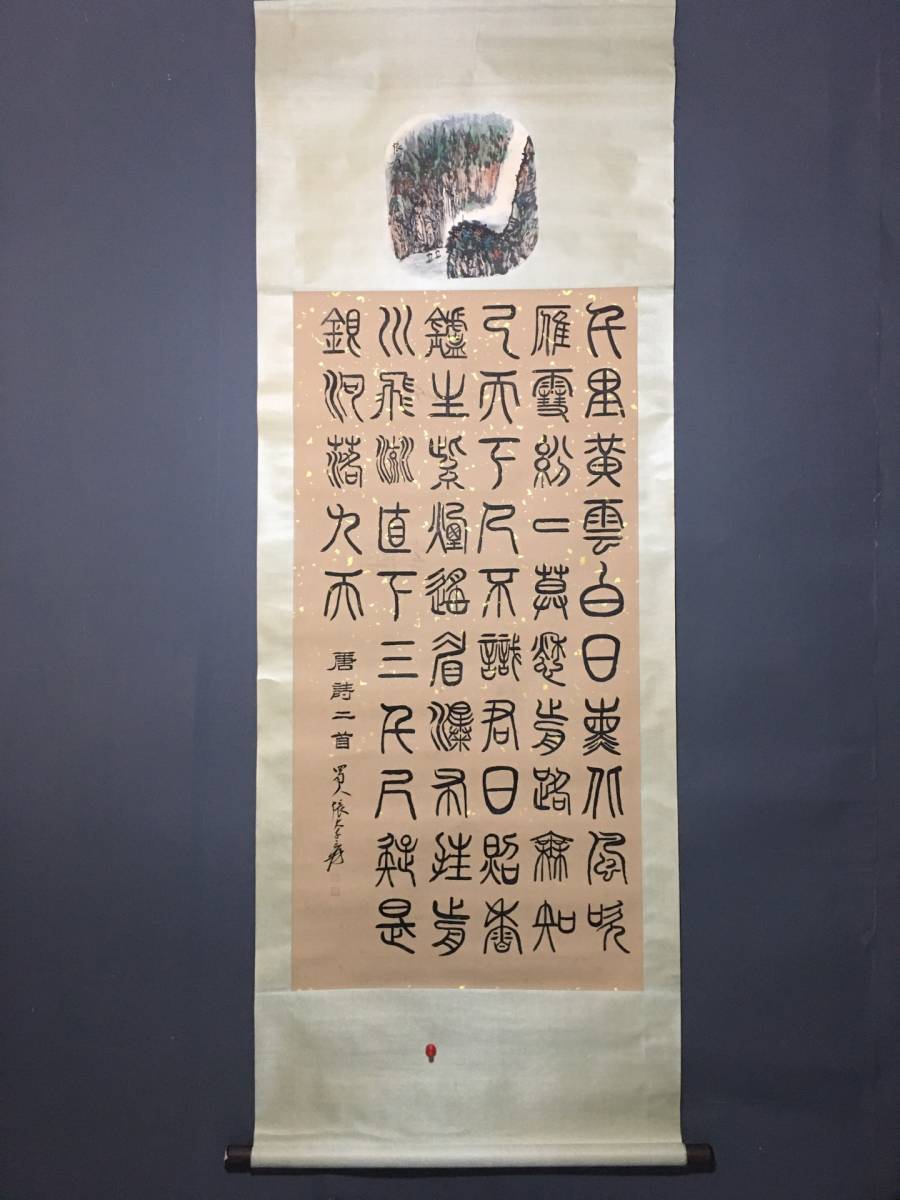 千里黃雲白日熏北風吹
雁雪紛二莫愁前路無知
己天下人不識君日照香
鑪生紫煙遙看瀑布挂前
川飛流直下三千尺疑是
銀河落九天
唐詩二首
蜀人張大千爰